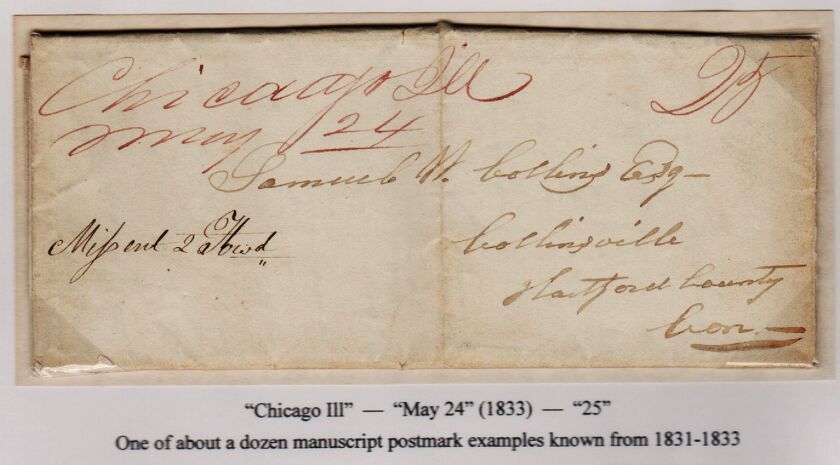 Chicago Ill 25
May 24
Samuel W. Collins Esq
Missent & Forwd
Collinsville
Hartford County
Con.
“Chicago Ill” — “May 24” (1833) — “25”
One of about a dozen manuscript postmark examples known from 1831-1833